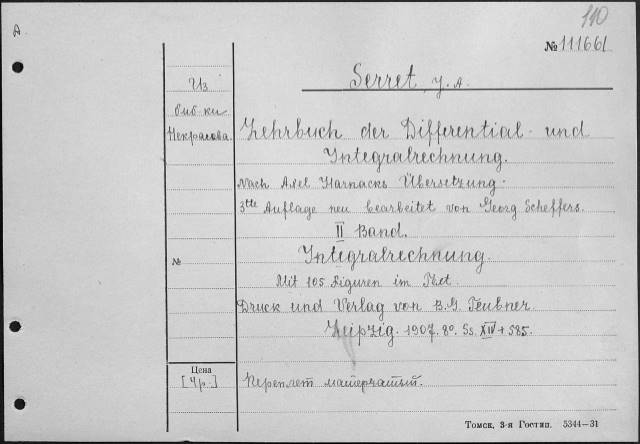 110
A
№ 111661
Serret, J. A.
Из
биб-ки
Некрасова.
Lehrbuch der Differential- und
Integralrechnung.
Nach Axel Harnacks Übersetzung.
3tte Auflage neu bearbeitet von Georg Scheffers.
II Band.
№
Integralrechnung.
Mit 105 Figuren im Text.
Druck und Verlag von B. G. Teubner.
Leipzig. 1907. 8°. Ss. XIV + 585.
Цена
[4р.]
Переплет матерчатый.
Томск, 3-я Гостип. 5344—31